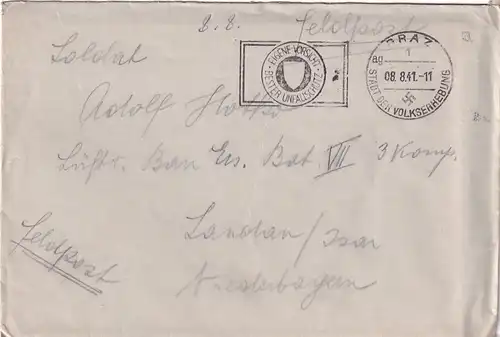 8. 8. Feldpost
GRAZ
1
ag
08.8.41.-11
STADT DER VOLKSERHEBUNG
EIGENE VORSICHT
BESTER UNFALLSCHUTZ
Soldat
Adolf
Luftw. Bau Ers. Bat. VII 3 Komp.
Landau/Isar
Niederbayern
Feldpost